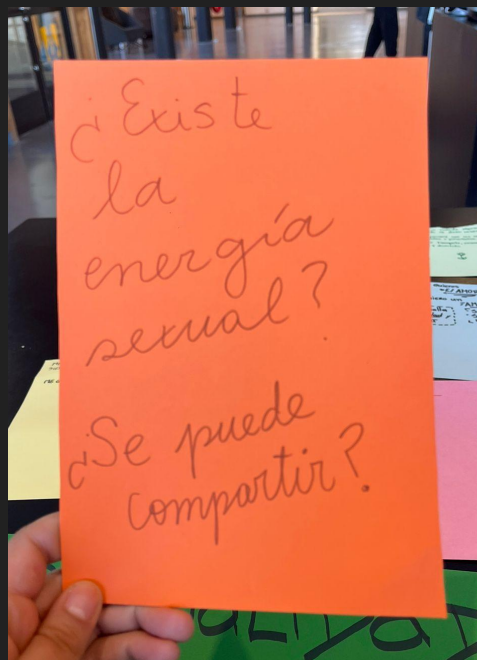 ¿Existe
la
energía
sexual?
¿Se puede
compartir?